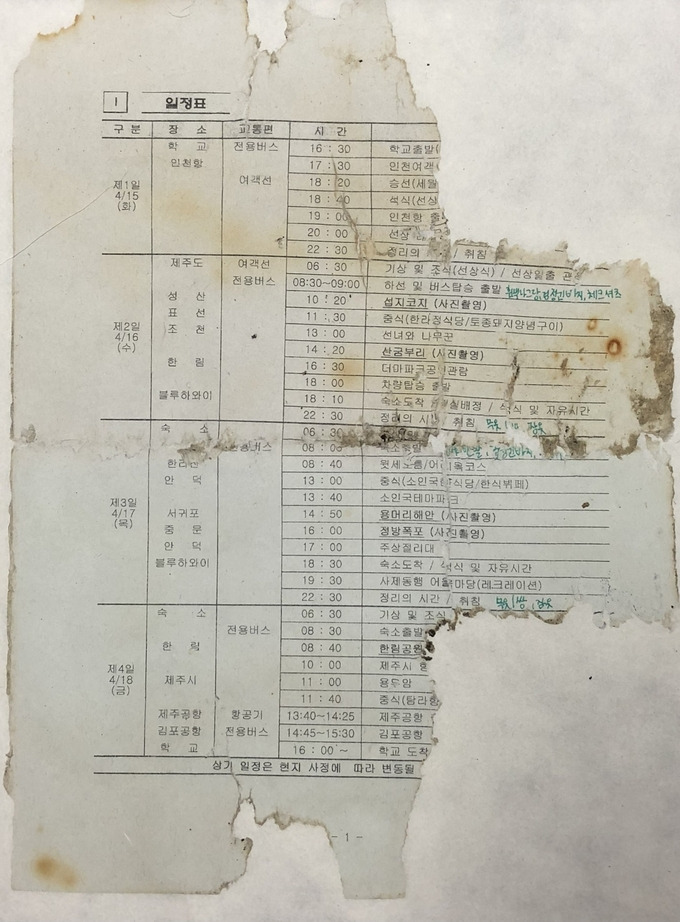 1 일정표
구분 장 소 교통편 시 간
학 교 전용버스 16 : 30 학교출발(
인천항 17 : 30 인천여객
제1일 4/15 (화) 여객선 18 : 20 승선(세월
18 : 40 석식(선상
19 : 00 인천항 출
20 : 00 선상
22 : 30 정리의 / 취침
제주도 여객선 06 : 30 기상 및 조식(선상식) / 선상일출 관
전용버스 08:30~09:00 하선 및 버스탑승 출발
성 산 10 : 20 섭지코지 (사진촬영)
표 선 11 : 30 중식(한라정식당/토종돼지양념구이)
제2일 4/16 (수) 조 천 13 : 00 선녀와 나무꾼
14 : 20 산굼부리 (사진촬영)
한 림 16 : 30 더마파크공연관람
18 : 00 차량탑승 출발
블루하와이 18 : 10 숙소도착 / 실배정 / 석식 및 자유시간
22 : 30 정리의 시간 취침 잠옷
숙 소 06 : 30
전용버스 08 : 00 숙소출발
한라산 08 : 40 윗세오름/어 목코스
안 덕 13 : 00 중식(소인국 식당/한식뷔페)
제3일 4/17 (목) 13 : 40 소인국테마파크
서귀포 14 : 50 용머리해안 (사진촬영)
중 문 16 : 00 정방폭포 (사진촬영)
안 덕 17 : 00 주상절리대
블루하와이 18 : 30 숙소도착 / 석식 및 자유시간
19 : 30 사제동행 어울마당(레크레이션)
22 : 30 정리의 시간 / 취침 잠옷
숙 소 06 : 30 기상 및 조식
전용버스 08 : 30 숙소출발
한 림 08 : 40 한림공원
제4일 4/18 (금) 10 : 00 제주시
제주시 11 : 00 용두암
11 : 40 중식(탐라
제주공항 항공기 13:40~14:25 제주공항
김포공항 전용버스 14:45~15:30 김포공항
학 교 16 : 00 ~ 학교 도착
상기 일정은 현지 사정에 따라 변동될
- 1 -